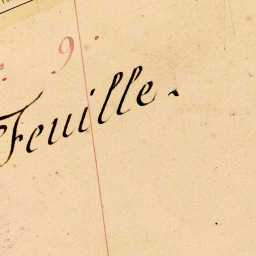 9.
Feuille.